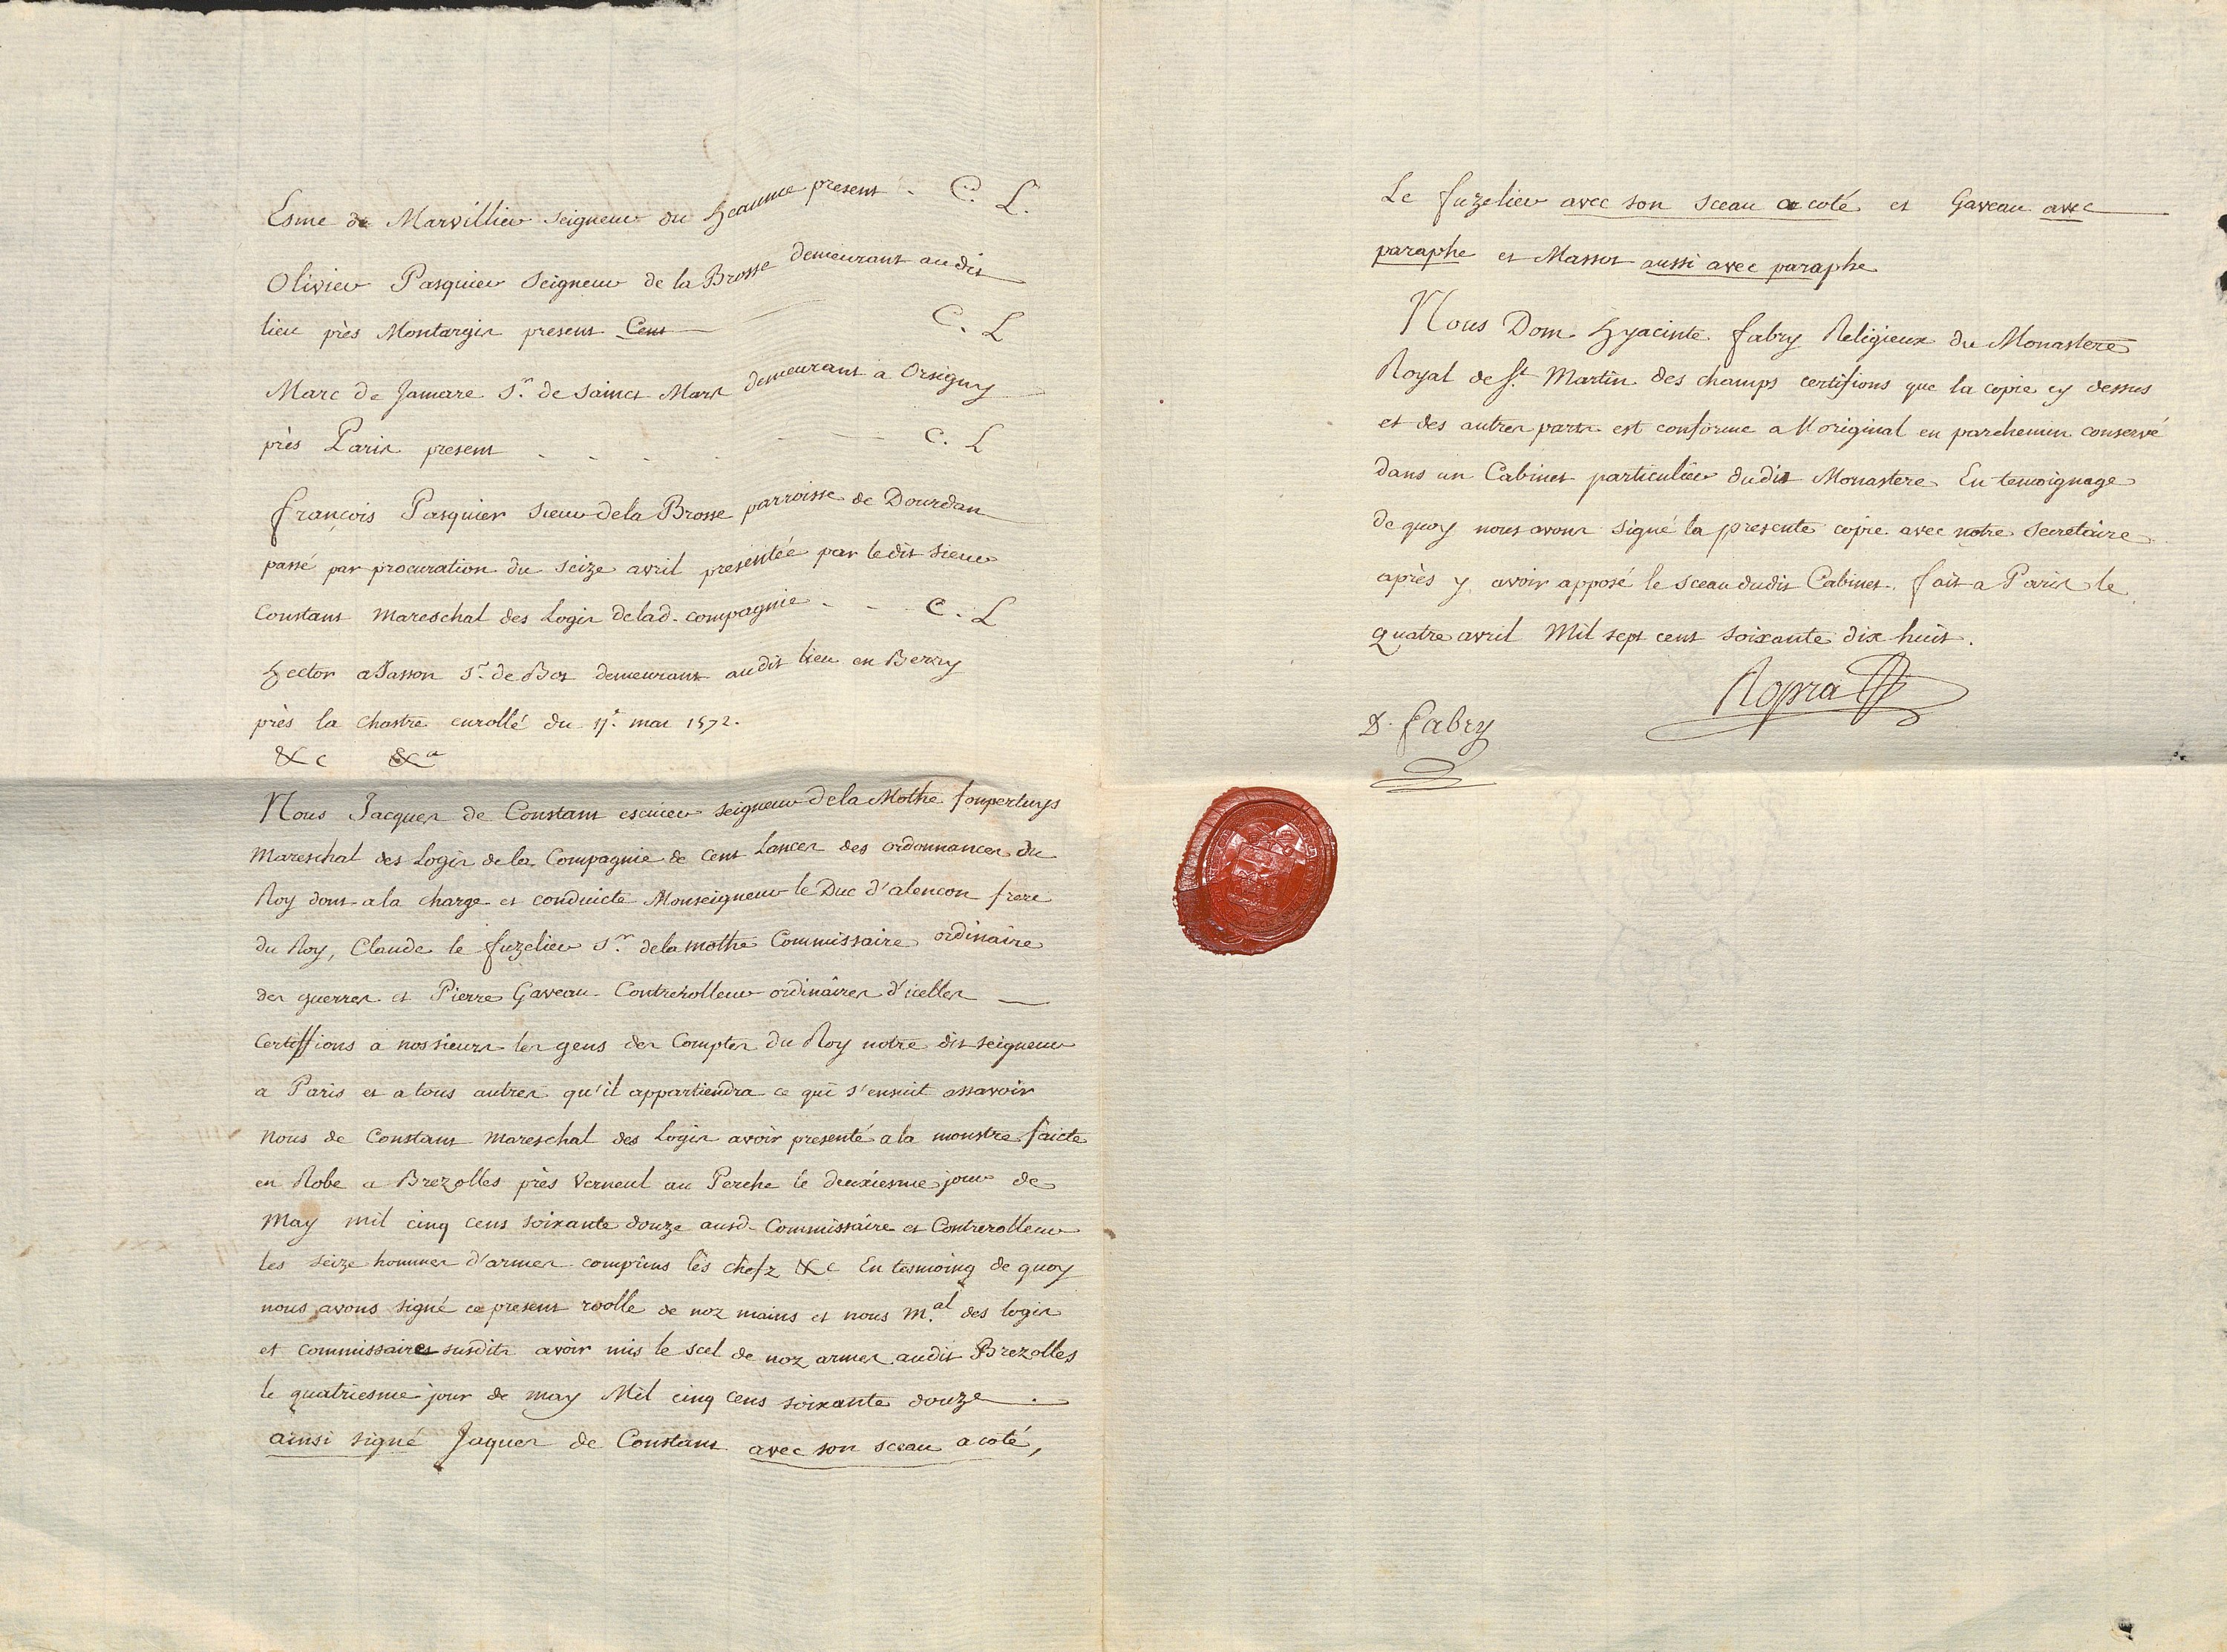 Esme de Marvillier Seigneur du heaume present . C. L.
Olivier Pasquier Seigneur de la Brosse demeurant audit
lieu près Montargis present Cent C. L
Marc de Jamere Sr. de Sainct Mars demeurant a Orsigny
près Paris present . . . . C. L
François Pasquier Sieur de la Brosse parroisse de Dourdan
passé par procuration du seize avril presentée par ledit sieur
Constant Mareschal des Logis de lad. compagnie . . C. L
Hector Sr. de Bos demeurant audit lieu en Berry
près la Chastre enrollé du mai 1572.
&c &ca
Nous Jacques de Constant escuier seigneur de la Mothe
Mareschal des Logis de la Compagnie de cent Lances des ordonnances du
Roy dont a la charge et conduicte Monseigneur le Duc d'alencon frere
du Roy, Claude le fuzelier Sr. de la mothe Commissaire ordinaire
des guerres et Pierre Gaveau Contrerolleur ordinaires d'icelles
Certiffions a nossieurs les gens des Comptes du Roy notre dit seigneur
a Paris et a tous autres qu'il appartiendra ce qui s'ensuit assavoir
nous de Constant mareschal des Logis avoir presenté a la monstre faicte
en Robe a Brezolles près Verneul au Perche le deuxiesme jour de
May mil cinq cens soixante douze ausd. Commissaire et Contrerolleur
les seize hommes d'armes comprins les chefz &c En tesmoing de quoy
nous avons signé ce present roolle de noz mains et nous m.al des logis
et commissaires susdits avoir mis le scel de noz armes audit Brezolles
le quatriesme jour de may Mil cinq cens soixante douze .
ainsi signé Jaques de Constant avec son sceau a coté,
Le fuzelier avec son sceau a coté et Gaveau avec
paraphe et Massot aussi avec paraphe
Nous Dom Hyacinte fabry Religieux du Monastere
Royal de St. Martin des champs certifions que la copie cy dessus
et des autres parts est conforme a l'original en parchemin conservé
dans un Cabinet particulier dudit Monastere En temoignage
de quoy nous avons signé la presente copie avec notre Secretaire
après y avoir apposé le sceau dudit Cabinet. fait a Paris le
quatre avril Mil sept cent soixante dix huit.
Ropra
D. fabry